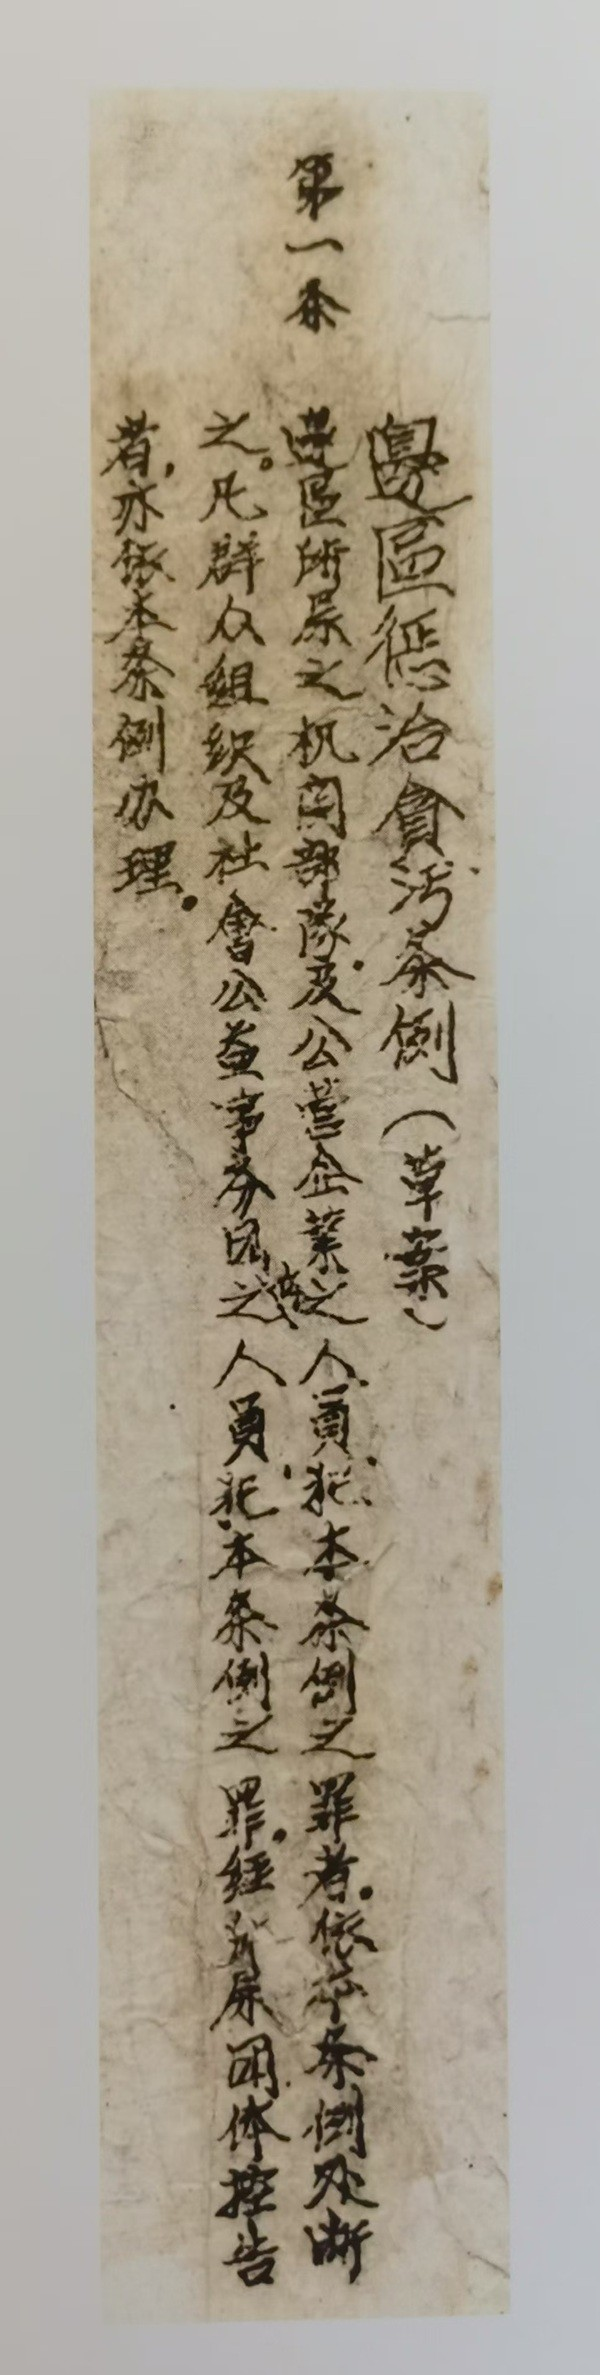 邊區惩治貪污条例（草案）
第一条
邊區所屬之机関部隊及公营企業之人員犯本条例之罪者。依本条例处断
之。凡群众組织及社會公益事务団之人員犯本条例之罪。经所屬団体控告
者，亦依本条例办理。